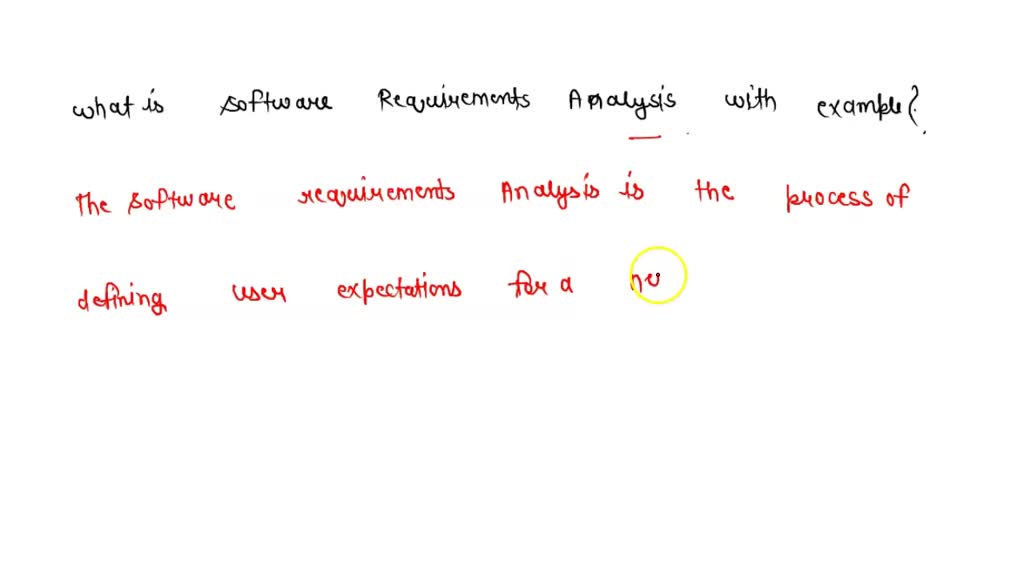 what is software Requirements Analysis with example?
The software requirements Analysis is the process of
defining user expectations for a ne